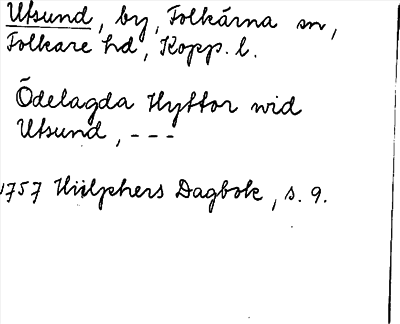 Utsund, by, Folkärna sn,
Folkare hd, Kopp. l.
Ödelagda Hyttor wid
Utsund, - - -
1757 Hülphers Dagbok, s. 9.